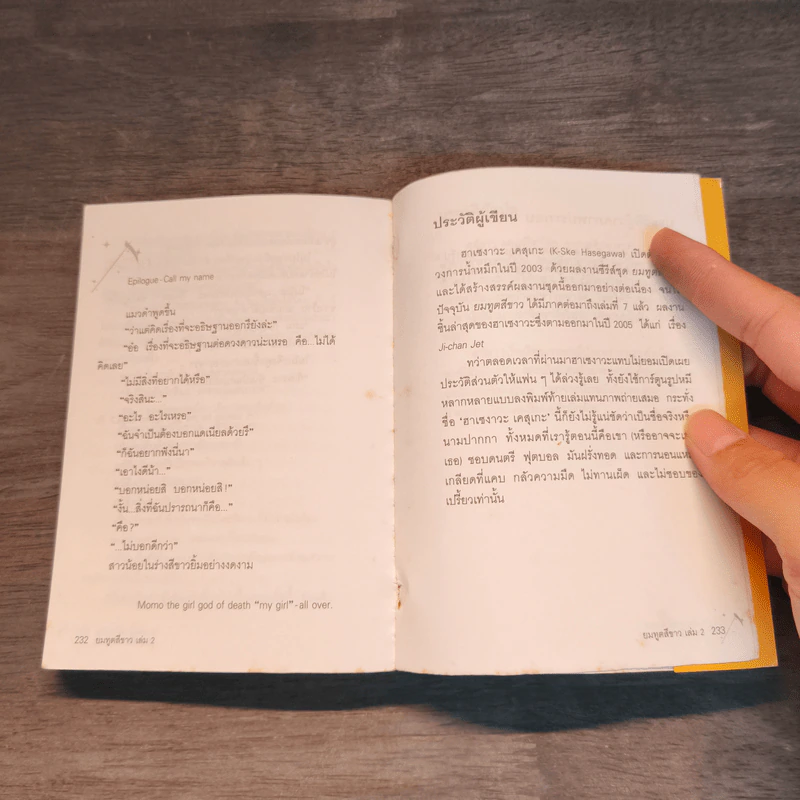 Epilogue - Call my name
แมวดำพูดขึ้น
“ว่าแต่คิดเรื่องที่จะอธิษฐานออกรึยังล่ะ”
“อ๋อ เรื่องที่จะอธิษฐานต่อดวงดาวน่ะเหรอ คือ...ไม่ได้
คิดเลย”
“ไม่มีสิ่งที่อยากได้หรือ”
“จริงสินะ...”
“อะไร อะไรเหรอ”
“ฉันจำเป็นต้องบอกแดเนียลด้วยรึ”
“ก็ฉันอยากฟังนี่นา”
“เอาไงดีน้า...”
“บอกหน่อยสิ บอกหน่อยสิ!”
“งั้น...สิ่งที่ฉันปรารถนาก็คือ...”
“คือ?”
“...ไม่บอกดีกว่า”
สาวน้อยในร่างสีขาวยิ้มอย่างงดงาม
Momo the girl god of death “my girl” - all over.
232 ยมทูตสีขาว เล่ม 2
ประวัติผู้เขียน
ฮาเซงาวะ เคสุเกะ (K-Ske Hasegawa) เปิด
วงการน้ำหมึกในปี 2003 ด้วยผลงานซีรีส์ชุด ยมทูต
และได้สร้างสรรค์ผลงานชุดนี้ออกมาอย่างต่อเนื่อง
ปัจจุบัน ยมทูตสีขาว ได้มีภาคต่อมาถึงเล่มที่ 7 แล้ว ผลงาน
ชิ้นล่าสุดของฮาเซงาวะซึ่งตามออกมาในปี 2005 ได้แก่ เรื่อง
Ji-chan Jet
ทว่าตลอดเวลาที่ผ่านมาฮาเซงาวะแทบไม่ยอมเปิดเผย
ประวัติส่วนตัวให้แฟน ๆ ได้ล่วงรู้เลย ทั้งยังใช้การ์ตูนรูปหมี
หลากหลายแบบลงพิมพ์ท้ายเล่มแทนภาพถ่ายเสมอ กระทั่ง
ชื่อ ‘ฮาเซงาวะ เคสุเกะ’ นี้ก็ยังไม่รู้แน่ชัดว่าเป็นชื่อจริงหรื
นามปากกา ทั้งหมดที่เรารู้ตอนนี้คือเขา (หรืออาจจะ
เธอ) ชอบดนตรี ฟุตบอล มันฝรั่งทอด และการนอน
เกลียดที่แคบ กลัวความมืด ไม่ทานเผ็ด และไม่ชอบ
เปรี้ยวเท่านั้น
ยมทูตสีขาว เล่ม 2 233